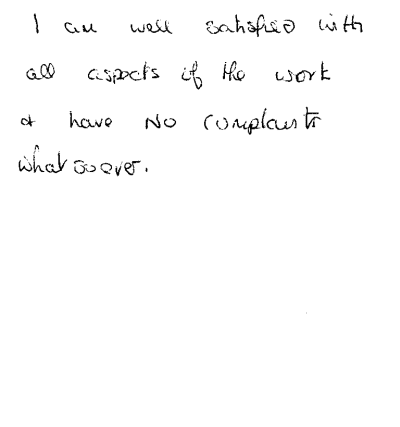 I am well satisfied with
all aspects of the work
& have NO complaints
whatsoever.